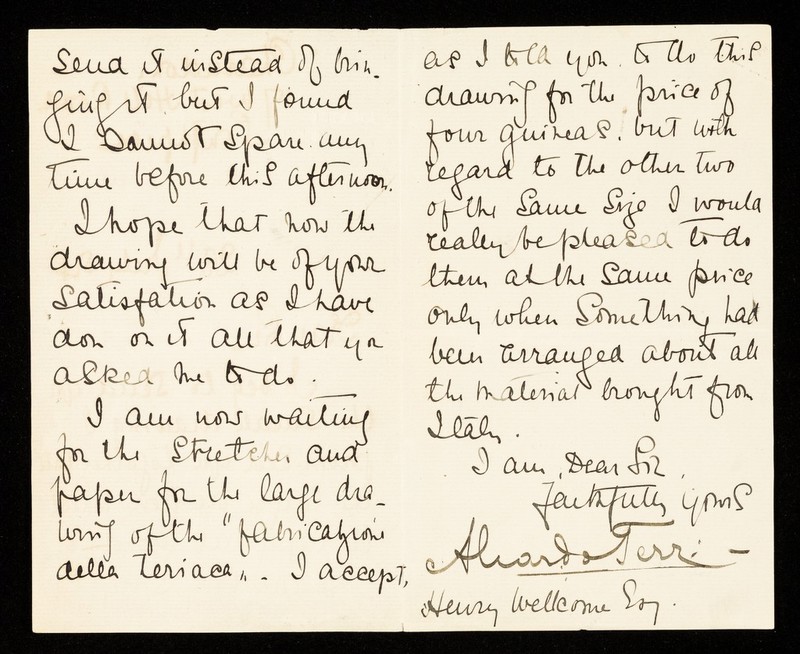 Send it instead of brin-
ging it but I found
I cannot spare any
time before this afternoon.
I hope that now the
drawing will be of your
Satisfation as I have
don on it all that you
asked me to do.
I am now waiting
for the stretcher and
paper for the large dra-
wing of the "fabricazione
della Teriaca„. I accept,
as I told you to do this
drawing for the price of
four guineas. but with
regard to the other two
of the same size I would
really be pleased to do
them at the same price
only when something had
been arranged about all
the material brought from
Italy.
I am, Dear Sir,
Faithfully yours
Terzi
Henry Wellcome Esq.